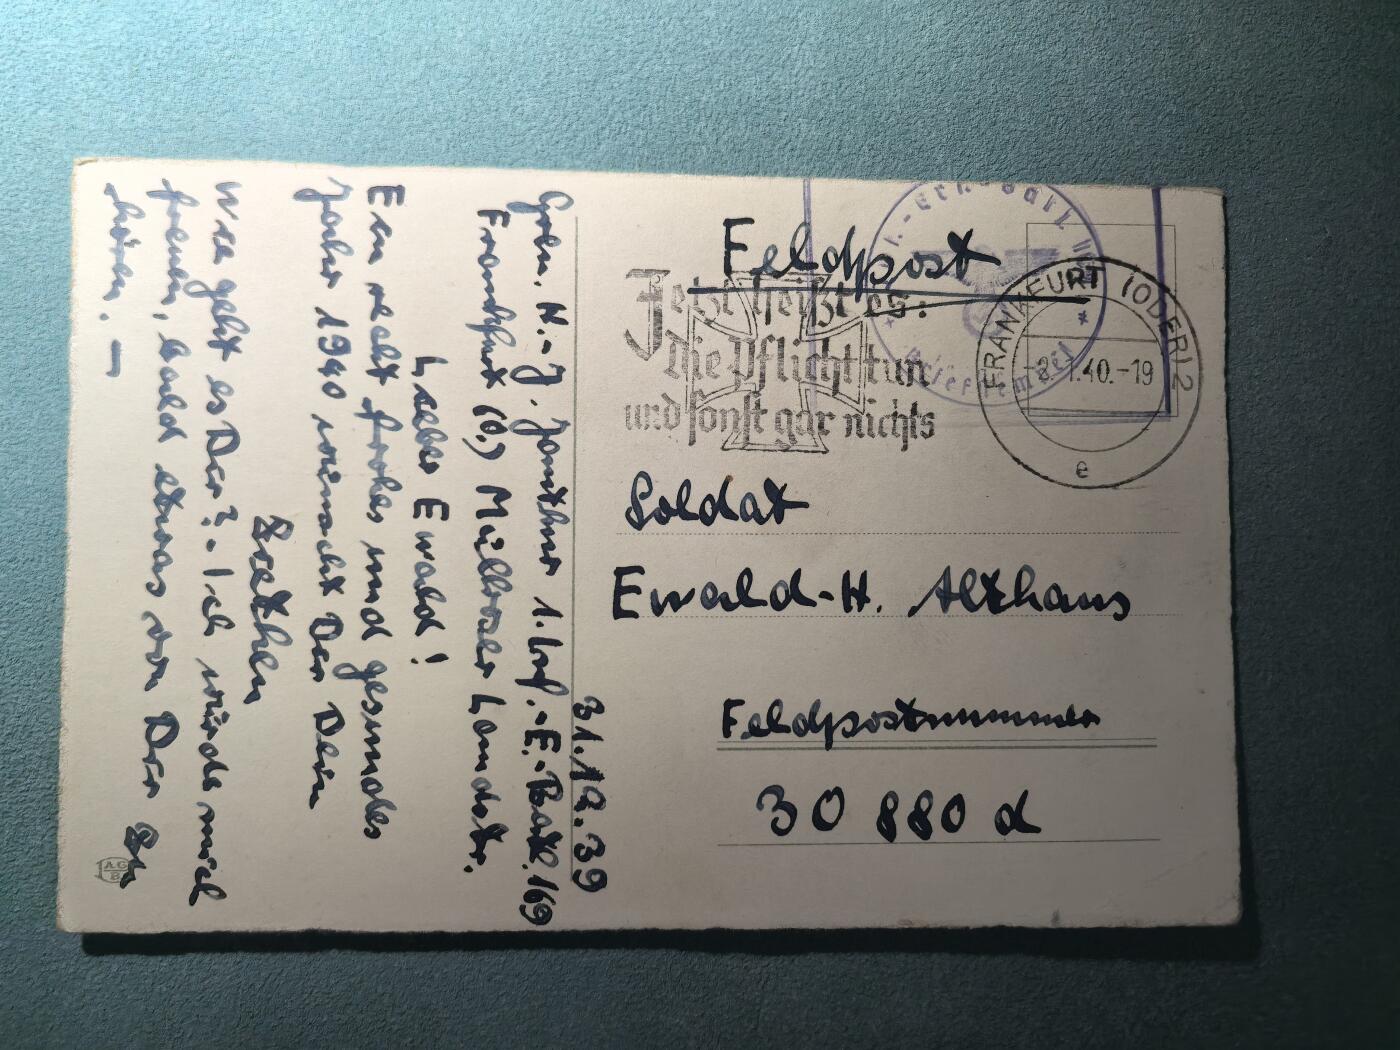 Feldpost
Jetzt heißt es:
Die Pflicht tun
und sonst gar nichts
FRANKFURT (ODER) 2
-8.1.40.-19
e
Briefstempel
Soldat
Ewald-H. Althaus
Feldpostnummer
30 880 d
31.12.39
Gren. H.-J. 1. Inf.-E.-Batl. 169
Frankfurt (O.) Müllroser Landstr.
Lieber Ewald!
Ein recht frohes und gesundes
Jahr 1940 wünscht Dir Dein
Wie geht es Dir? - Ich würde mich
freuen, bald etwas von Dir zu
hören. -
AG
B